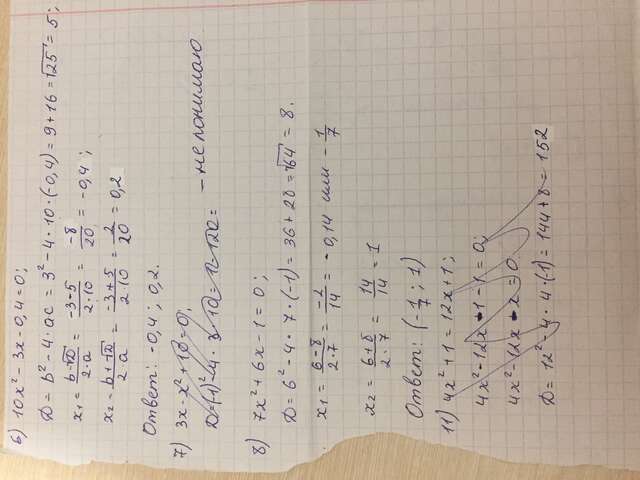 6) 10x² - 3x - 0,4 = 0;
D = b² - 4 · ac = 3² - 4 · 10 · (-0,4) = 9 + 16 = √25 = 5;
x₁ = (b - √D)/(2·a) = (-3-5)/(2·10) = (-8)/20 = -0,4;
x₂ = (b + √D)/(2·a) = (-3+5)/(2·10) = 2/20 = 0,2
Ответ: -0,4; 0,2.
7) 3x - x² + 10 = 0;
D = (-1)² - 4 · 3 · 10 = 1 - 120 =
- не понимаю
8) 7x² + 6x - 1 = 0;
D = 6² - 4 · 7 · (-1) = 36 + 28 = √64 = 8.
x₁ = (6-8)/(2·7) = (-2)/14 = -0,14 или -1/7
x₂ = (6+8)/(2·7) = 14/14 = 1
Ответ: (-1/7; 1)
11) 4x² + 1 = 12x + 1;
4x² - 12x + 1 - 1 = 0;
4x² - 12x - x = 0
D = 12² - 4 · 4 · (-1) = 144 + 8 = 152